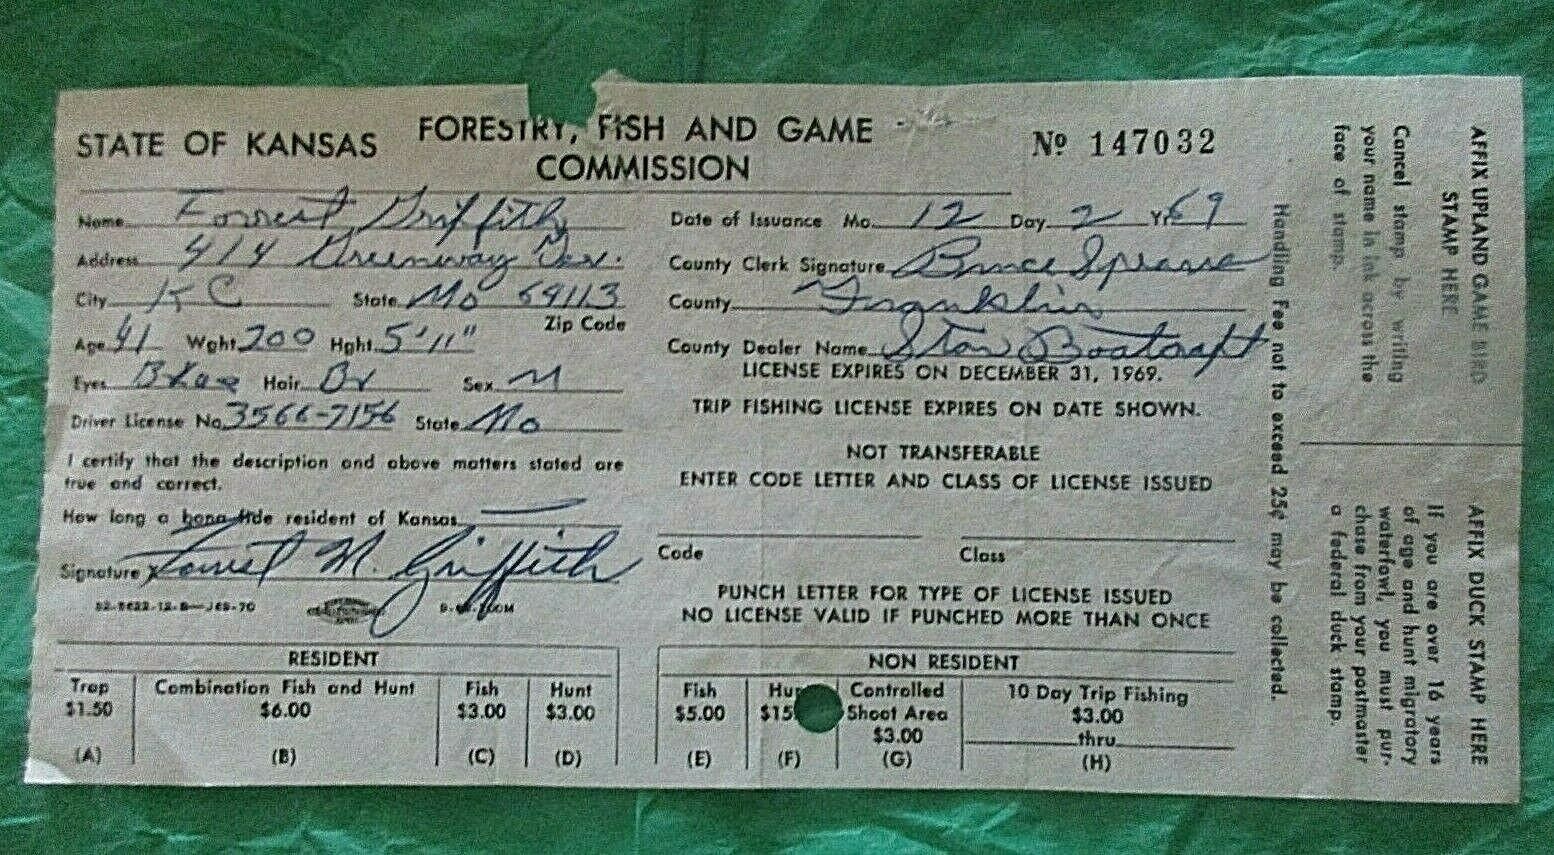 STATE OF KANSAS
FORESTRY, FISH AND GAME
COMMISSION
Nº 147032
Name Forrest Griffith
Address 414 Greenway Ter.
City K C State Mo 64113
Zip Code
Age 41 Wght 200 Hght 5'11"
Eyes Hair Br Sex M
Driver License No. 3566-7156 State Mo
I certify that the description and above matters stated are
true and correct.
How long a bona fide resident of Kansas —
Signature x Forrest M. Griffith
Date of Issuance Mo. 12 Day 2 Yr. 69
County Clerk Signature Bruce Spears
County Franklin
County Dealer Name Star Boatcraft
LICENSE EXPIRES ON DECEMBER 31, 1969.
TRIP FISHING LICENSE EXPIRES ON DATE SHOWN.
NOT TRANSFERABLE
ENTER CODE LETTER AND CLASS OF LICENSE ISSUED
Code Class
PUNCH LETTER FOR TYPE OF LICENSE ISSUED
NO LICENSE VALID IF PUNCHED MORE THAN ONCE
RESIDENT
Trap
$1.50
(A)
Combination Fish and Hunt
$6.00
(B)
Fish
$3.00
(C)
Hunt
$3.00
(D)
NON RESIDENT
Fish
$5.00
(E)
Hun
$15
(F)
Controlled
Shoot Area
$3.00
(G)
10 Day Trip Fishing
$3.00
thru
(H)
Handling Fee not to exceed 25¢ may be collected.
AFFIX UPLAND GAME BIRD
STAMP HERE
Cancel stamp by writing
your name in ink across the
face of stamp.
AFFIX DUCK STAMP HERE
If you are over 16 years
of age and hunt migratory
waterfowl, you must pur-
chase from your postmaster
a federal duck stamp.